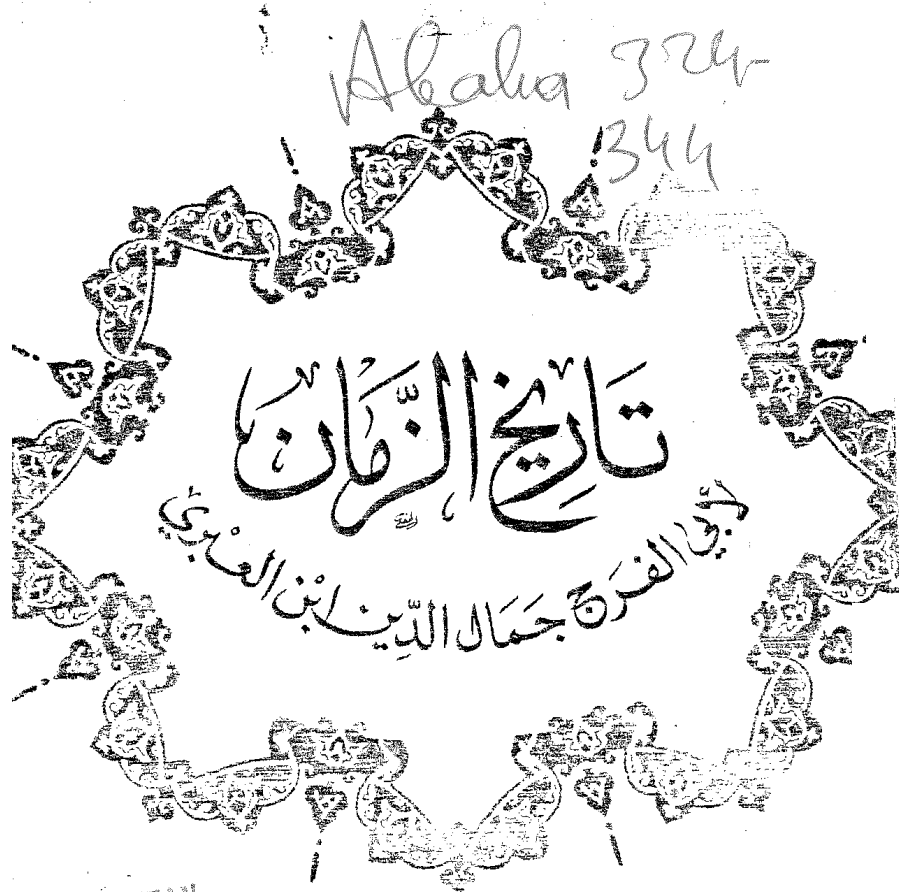 Abaka 324-
344
تَاريخ الزَّمَان
لأبي الفَرَج جَمَال الدِّين ابْن العِبْري